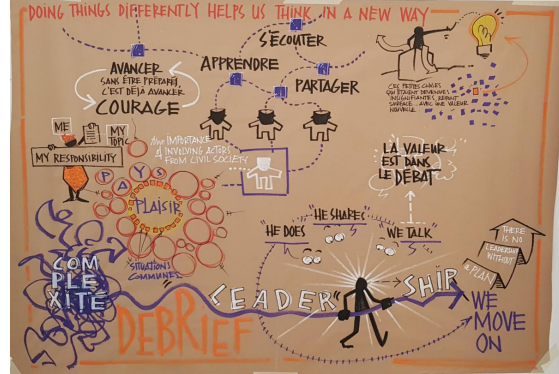 DOING THINGS DIFFERENTLY HELPS US THINK IN A NEW WAY
AVANCER
SANS ÊTRE PRÉPARÉS
C'EST DÉJÀ AVANCER
COURAGE
S'ÉCOUTER
APPRENDRE
PARTAGER
CES PETITES CHOSES
QUI ÉTAIENT DEVENUES
INSIGNIFIANTES, REFONT
SURFACE.. AVEC UNE VALEUR
NOUVELLE.
ME
MY
TOPIC
MY RESPONSIBILITY
THE IMPORTANCE
OF INVOLVING ACTORS
FROM CIVIL SOCIETY
PAYS
PLAISIR
SITUATIONS
COMMUNES
LA VALEUR
EST DANS
LE DÉBAT
HE DOES
HE SHARES
WE TALK
THERE
IS NO
LEADERSHIP
WITHOUT
A PLAN
COM
PLE
XITÉ
LEADER
SHIP
DEBRIEF
WE
MOVE
ON